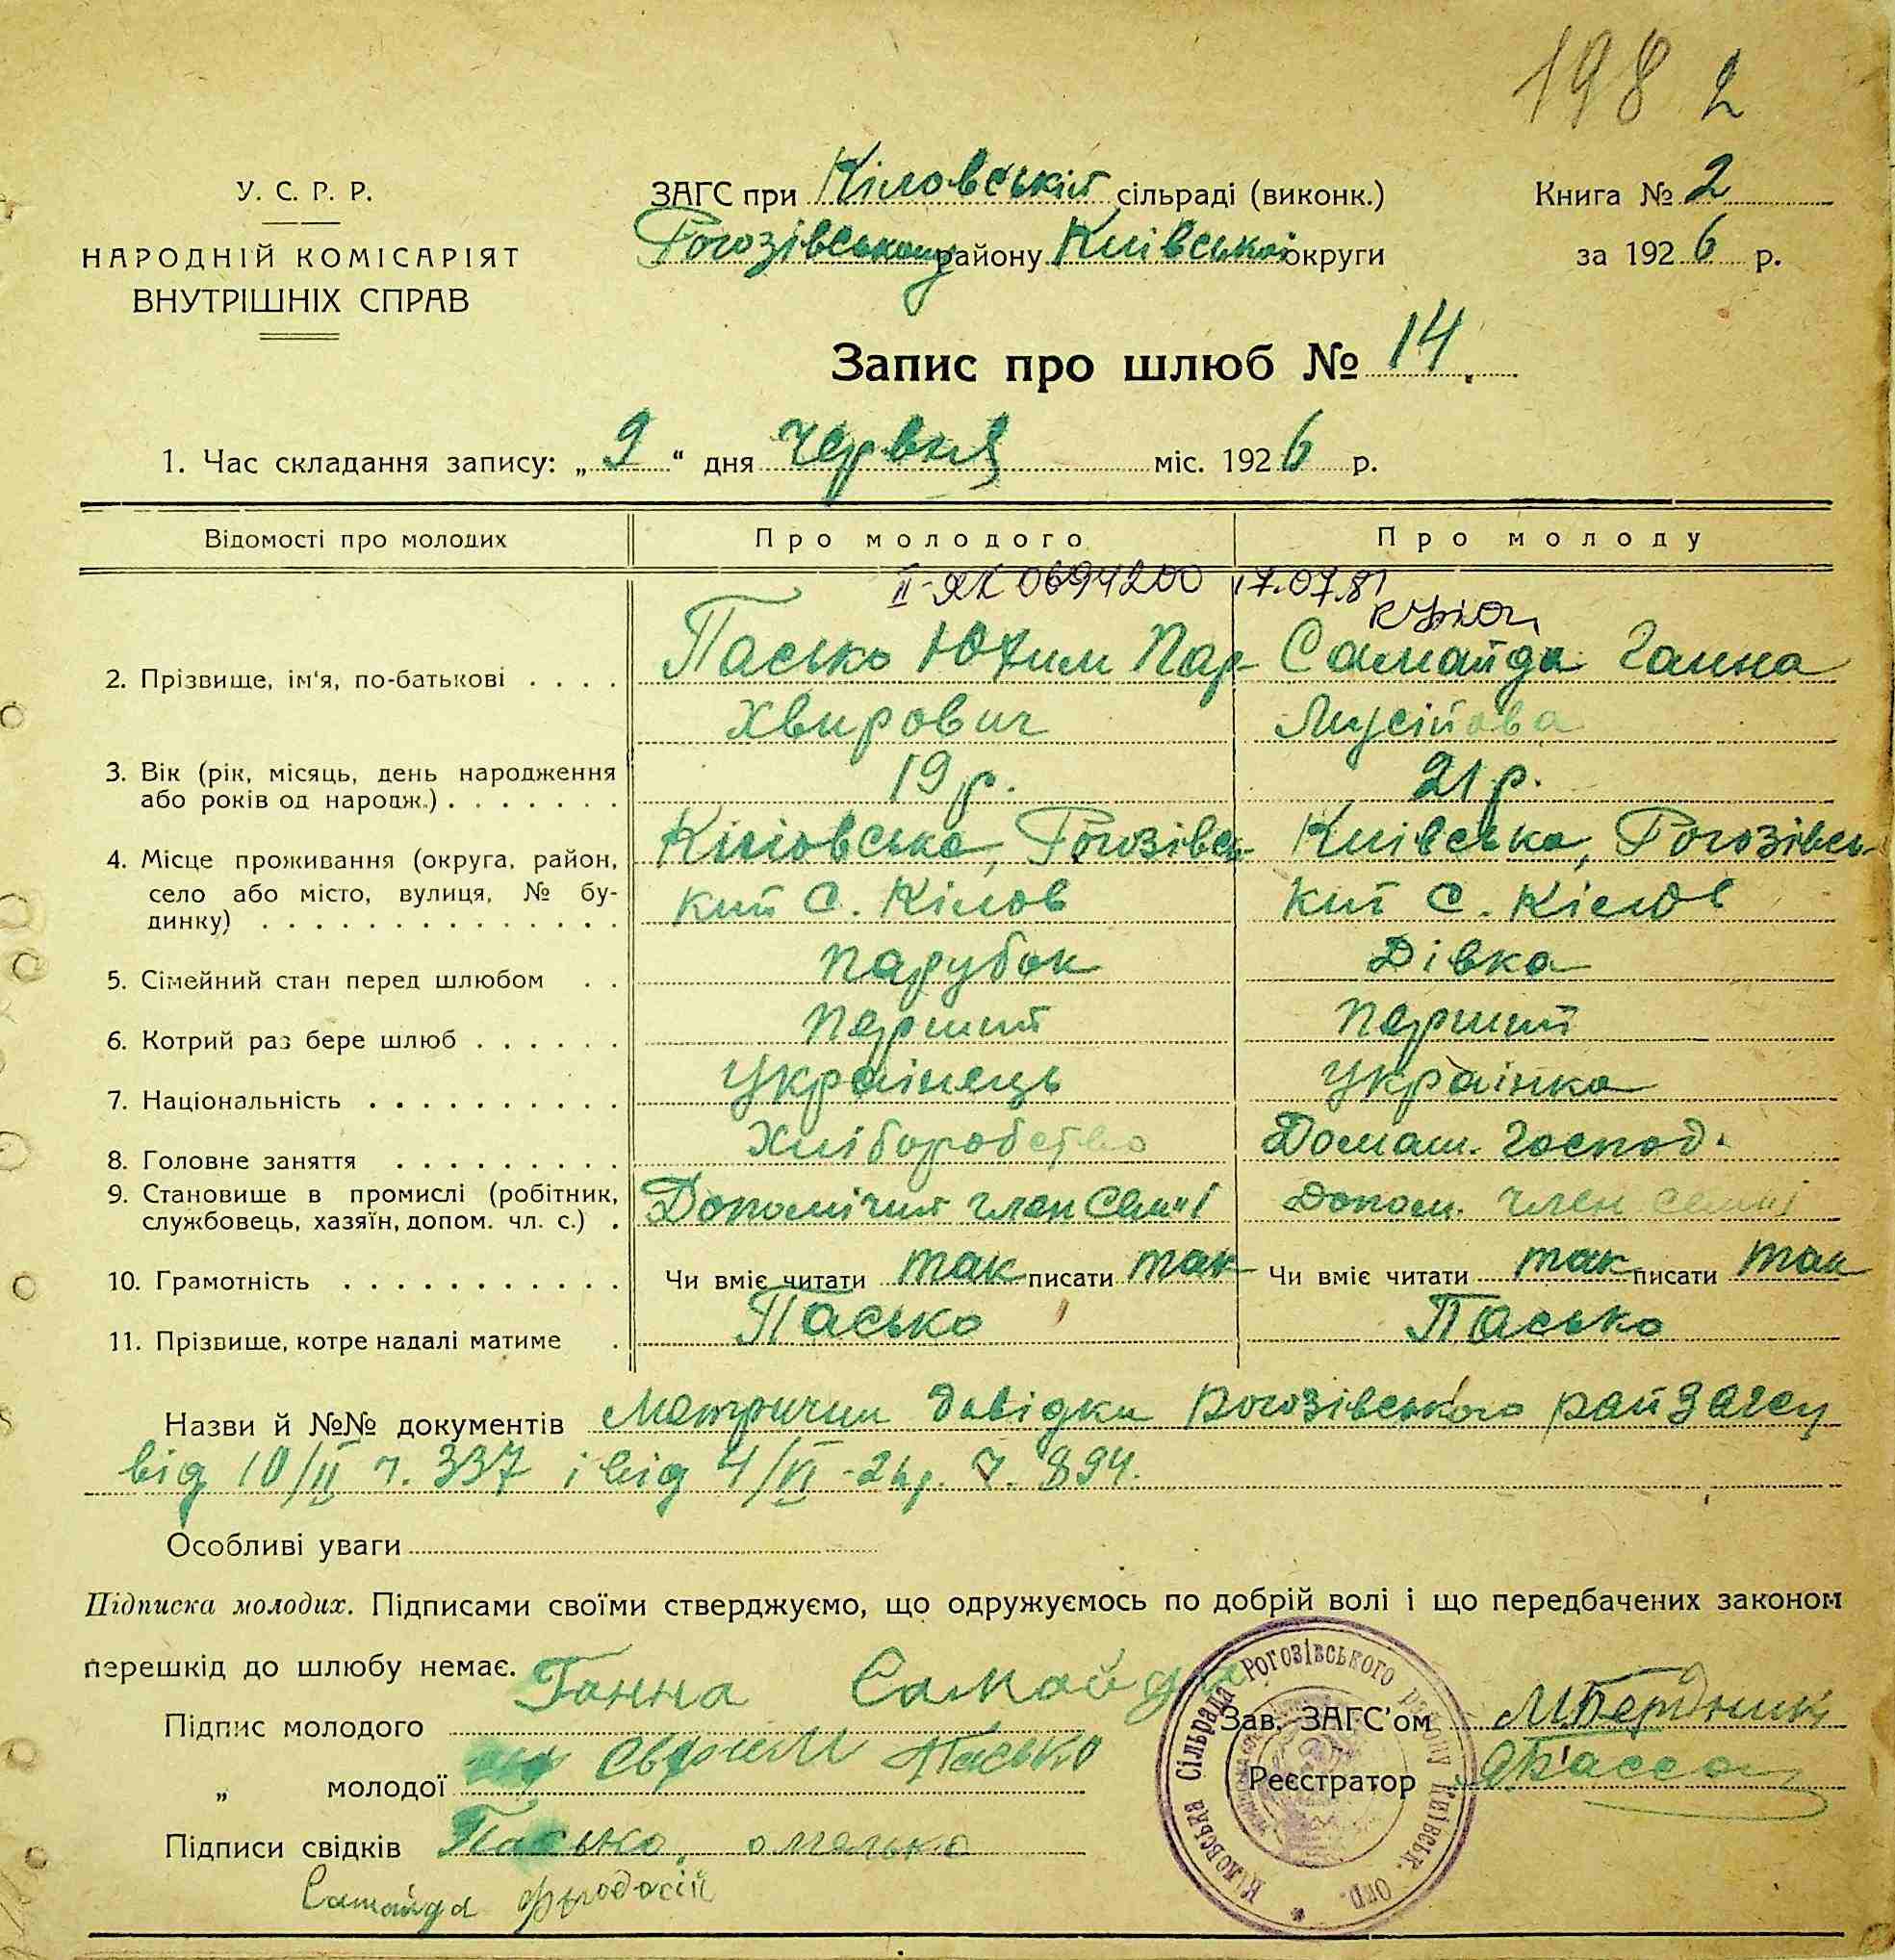 198 2
У. С. Р. Р.
НАРОДНІЙ КОМІСАРІЯТ
ВНУТРІШНІХ СПРАВ
ЗАГС при Кіловській сільраді (виконк.)
Рогозівського району Київської округи
Книга № 2
за 1926 р.
Запис про шлюб № 14.
1. Час складання запису: „ 9 “ дня червня міс. 1926 р.
Відомості про молодих Про молодого Про молоду
II-ЯК 0694200 17.07.81
2. Прізвище, ім'я, по-батькові . . . . Пасько Юхим Пар Самайда Ганна
Хвирович Мусійова
3. Вік (рік, місяць, день народження 19 р. 21 р.
або років од народж.) . . . . . . .
4. Місце проживання (округа, район, Київська, Рогозівсь Київська, Рогозівсь
село або місто, вулиця, № бу- кий с. Кілов кий с. Кілов
динку) . . . . . . . . . . . . . .
5. Сімейний стан перед шлюбом . . Парубок Дівка
6. Котрий раз бере шлюб . . . . . . Перший Перший
7. Національність . . . . . . . . . . Українець Українка
8. Головне заняття . . . . . . . . . Хліборобство Домаш. господ.
9. Становище в промислі (робітник, Допомічий член семї Допом. член семї
службовець, хазяїн, допом. чл. с.) .
10. Грамотність . . . . . . . . . . . Чи вміє читати так писати так Чи вміє читати так писати так
11. Прізвище, котре надалі матиме . Пасько Пасько
Назви й №№ документів Метричні довідки Рогозівського райЗАГСу
від 10/II ч. 337 і від 4/VI -26р. ч. 894.
Особливі уваги
Підписка молодих. Підписами своїми стверджуємо, що одружуємось по добрій волі і що передбачених законом
перешкід до шлюбу немає.
Підпис молодого Ганна Самайда
„ молодої Пасько
Підписи свідків Пасько омелько
Самайда
Зав. ЗАГС'ом М Бердник
Реєстратор
Кіловська Сільрада Рогозівського району Київськ. окр.